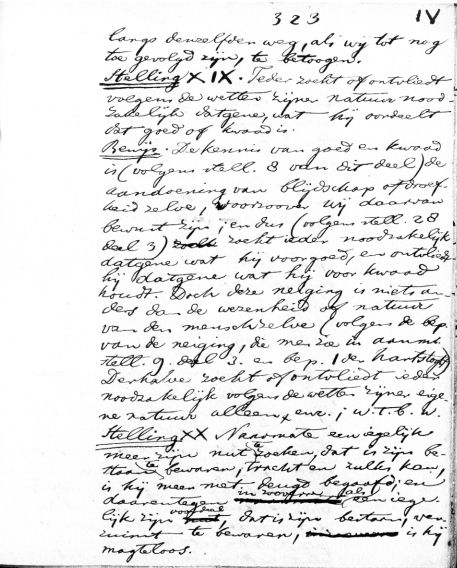 323 IV
langs denzelfden weg, als wij tot nog
toe gevolgd zijn, te betoogen.
Stelling XIX. Ieder zoekt of ontvliedt
volgens de wetten zijner natuur nood-
zakelijk datgene, wat hij oordeelt
dat goed of kwaad is.
Bewijs. De kennis van goed en kwaad
is (volgens stell. 8 van dit deel) de
aandoening van blijdschap of droef-
heid zelve, voorzoover wij daarvan
bewust zijn; en dus (volgens stell. 28
deel 3) zoekt ieder noodzakelijk
datgene wat hij voor goed, en ontvliedt
hij datgene wat hij voor kwaad
houdt. Doch deze neiging is niets an-
ders dan de wezenheid of natuur
van den mensch zelve (volgens de bep.
van de neiging, die men zie in aanm.
stell. 9 deel 3. en bep. 1 der hartstogten)
Derhalve zoekt of ontvliedt ieder
noodzakelijk volgens de wetten zijner eige-
ne natuur alleen, enz.; w.t.b.w.
Stelling XX Naarmate een iegelijk
meer zijn nut te zoeken, dat is zijn be-
staan te bewaren, tracht en zulks kan,
is hij meer met deugd begaafd; en
daarentegen als een iege-
lijk zijn voordeel, dat is zijn bestaan, ver-
zuimt te bewaren, is hij
magteloos.